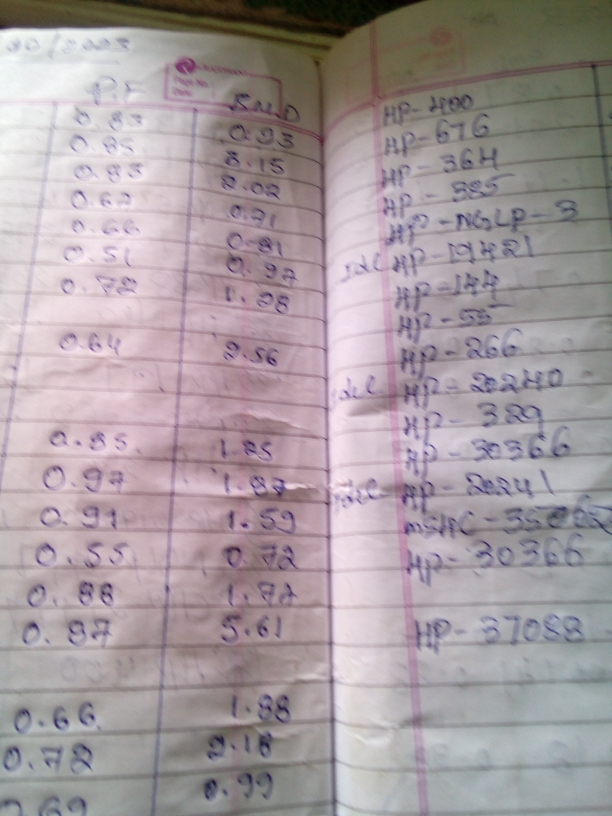 90/2023
Page No.
Date
P.F B.M.D
0.83 0.93
0.85 2.15
0.83 2.02
0.67 0.71
0.66 0.81
0.51 0.97
0.72 1.28
0.64 2.56
0.85 1.25
0.97 1.87
0.91 1.59
0.55 0.72
0.88 1.77
0.87 5.61
0.66 1.88
0.72 2.18
0.69 0.99
HP-400
HP-676
HP-364
HP-385
HP-NGLP-3
Idel HP-19421
HP-144
HP-55
HP-266
Idel HP-20240
HP-329
HP-30366
Idel HP-20241
HP-30366
HP-37088